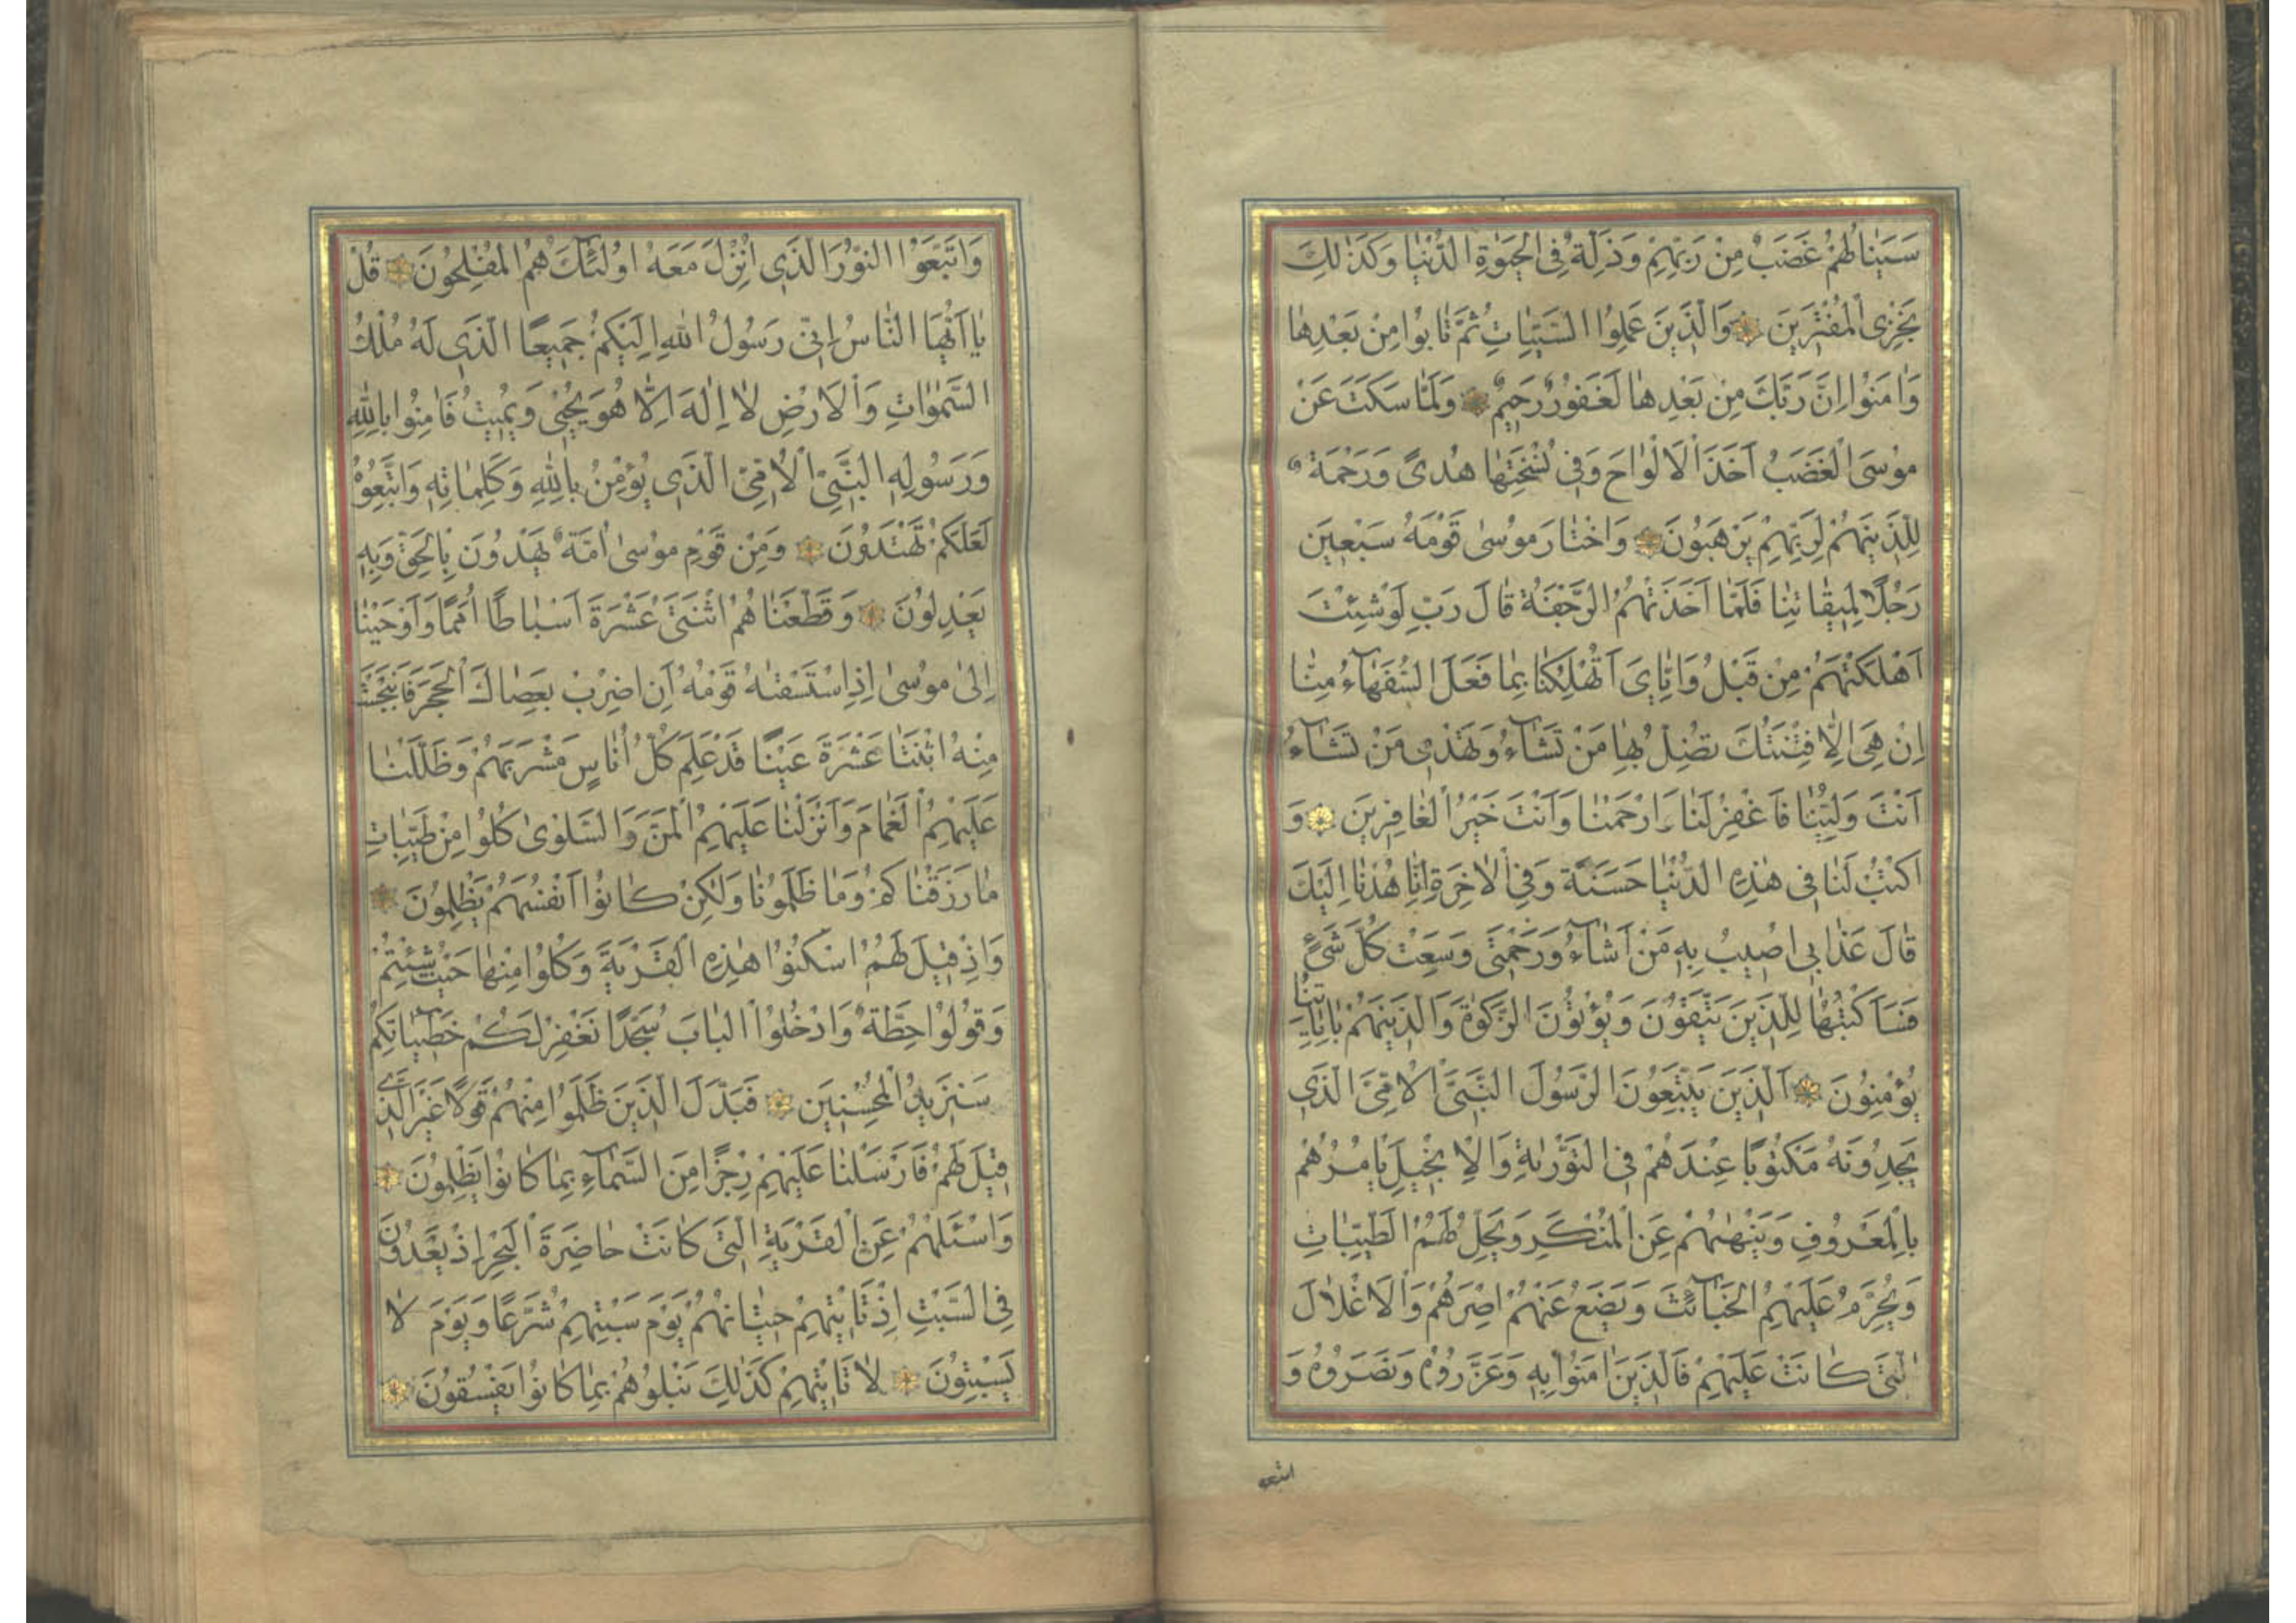 سَيَنٰالُهُمْ غَضَبٌ مِنْ رَبِّهِمْ وَذِلَّةٌ فِى الْحَيٰوةِ الدُّنْيٰا وَكَذٰلِكَ
نَجْزِى الْمُفْتَرِينَ وَالَّذِينَ عَمِلُوا السَّيِّئٰاتِ ثُمَّ تٰابُوا مِنْ بَعْدِهٰا
وَاٰمَنُوا اِنَّ رَبَّكَ مِنْ بَعْدِهٰا لَغَفُورٌ رَحِيمٌ وَلَمّٰا سَكَتَ عَنْ
مُوسَى الْغَضَبُ اَخَذَ الْاَلْوٰاحَ وَفِى نُسْخَتِهٰا هُدىً وَرَحْمَةٌ
لِلَّذِينَهُمْ لِرَبِّهِمْ يَرْهَبُونَ وَاخْتٰارَ مُوسٰى قَوْمَهُ سَبْعِينَ
رَجُلًا لِمِيقٰاتِنٰا فَلَمّٰا اَخَذَتْهُمُ الرَّجْفَةُ قٰالَ رَبِّ لَوْ شِئْتَ
اَهْلَكْتَهُمْ مِنْ قَبْلُ وَاِيّٰاىَ اَتُهْلِكُنٰا بِمٰا فَعَلَ السُّفَهٰآءُ مِنّٰا
اِنْ هِىَ اِلّٰا فِتْنَتُكَ تُضِلُّ بِهٰا مَنْ تَشٰآءُ وَتَهْدِى مَنْ تَشٰآءُ
اَنْتَ وَلِيُّنٰا فَاغْفِرْ لَنٰا وَارْحَمْنٰا وَاَنْتَ خَيْرُ الْغٰافِرِينَ وَ
اكْتُبْ لَنٰا فِى هٰذِهِ الدُّنْيٰا حَسَنَةً وَفِى الْاٰخِرَةِ اِنّٰا هُدْنٰا اِلَيْكَ
قٰالَ عَذٰابِى اُصِيبُ بِهِ مَنْ اَشٰآءُ وَرَحْمَتِى وَسِعَتْ كُلَّ شَىْءٍ
فَسَاَكْتُبُهٰا لِلَّذِينَ يَتَّقُونَ وَيُؤْتُونَ الزَّكٰوةَ وَالَّذِينَهُمْ بِاٰيٰاتِنٰا
يُؤْمِنُونَ اَلَّذِينَ يَتَّبِعُونَ الرَّسُولَ النَّبِىَّ الْاُمِّىَّ الَّذِى
يَجِدُونَهُ مَكْتُوبًا عِنْدَهُمْ فِى التَّوْرٰيةِ وَالْاِنْجِيلِ يَاْمُرُهُمْ
بِالْمَعْرُوفِ وَيَنْهٰيهُمْ عَنِ الْمُنْكَرِ وَيُحِلُّ لَهُمُ الطَّيِّبٰاتِ
وَيُحَرِّمُ عَلَيْهِمُ الْخَبٰآئِثَ وَيَضَعُ عَنْهُمْ اِصْرَهُمْ وَالْاَغْلٰالَ
الَّتِى كٰانَتْ عَلَيْهِمْ فَالَّذِينَ اٰمَنُوا بِهِ وَعَزَّرُوهُ وَنَصَرُوهُ وَ
اتبعوا
وَاتَّبَعُوا النُّورَ الَّذِى اُنْزِلَ مَعَهُ اُولٰئِكَ هُمُ الْمُفْلِحُونَ قُلْ
يٰا اَيُّهَا النّٰاسُ اِنِّى رَسُولُ اللهِ اِلَيْكُمْ جَمِيعًا الَّذِى لَهُ مُلْكُ
السَّمٰوٰاتِ وَالْاَرْضِ لٰا اِلٰهَ اِلّٰا هُوَ يُحْيِى وَيُمِيتُ فَاٰمِنُوا بِاللهِ
وَرَسُولِهِ النَّبِىِّ الْاُمِّىِّ الَّذِى يُؤْمِنُ بِاللهِ وَكَلِمٰاتِهِ وَاتَّبِعُوهُ
لَعَلَّكُمْ تَهْتَدُونَ وَمِنْ قَوْمِ مُوسٰى اُمَّةٌ يَهْدُونَ بِالْحَقِّ وَبِهِ
يَعْدِلُونَ وَقَطَّعْنٰاهُمُ اثْنَتَىْ عَشْرَةَ اَسْبٰاطًا اُمَمًا وَاَوْحَيْنٰا
اِلٰى مُوسٰى اِذِ اسْتَسْقٰيهُ قَوْمُهُ اَنِ اضْرِبْ بِعَصٰاكَ الْحَجَرَ فَانْبَجَسَتْ
مِنْهُ اثْنَتٰا عَشْرَةَ عَيْنًا قَدْ عَلِمَ كُلُّ اُنٰاسٍ مَشْرَبَهُمْ وَظَلَّلْنٰا
عَلَيْهِمُ الْغَمٰامَ وَاَنْزَلْنٰا عَلَيْهِمُ الْمَنَّ وَالسَّلْوٰى كُلُوا مِنْ طَيِّبٰاتِ
مٰا رَزَقْنٰاكُمْ وَمٰا ظَلَمُونٰا وَلٰكِنْ كٰانُوا اَنْفُسَهُمْ يَظْلِمُونَ
وَاِذْ قِيلَ لَهُمُ اسْكُنُوا هٰذِهِ الْقَرْيَةَ وَكُلُوا مِنْهٰا حَيْثُ شِئْتُمْ
وَقُولُوا حِطَّةٌ وَادْخُلُوا الْبٰابَ سُجَّدًا نَغْفِرْ لَكُمْ خَطِيٓـٰٔاتِكُمْ
سَنَزِيدُ الْمُحْسِنِينَ فَبَدَّلَ الَّذِينَ ظَلَمُوا مِنْهُمْ قَوْلًا غَيْرَ الَّذِى
قِيلَ لَهُمْ فَاَرْسَلْنٰا عَلَيْهِمْ رِجْزًا مِنَ السَّمٰآءِ بِمٰا كٰانُوا يَظْلِمُونَ
وَاسْئَلْهُمْ عَنِ الْقَرْيَةِ الَّتِى كٰانَتْ حٰاضِرَةَ الْبَحْرِ اِذْ يَعْدُونَ
فِى السَّبْتِ اِذْ تَاْتِيهِمْ حِيتٰانُهُمْ يَوْمَ سَبْتِهِمْ شُرَّعًا وَيَوْمَ لٰا
يَسْبِتُونَ لٰا تَاْتِيهِمْ كَذٰلِكَ نَبْلُوهُمْ بِمٰا كٰانُوا يَفْسُقُونَ